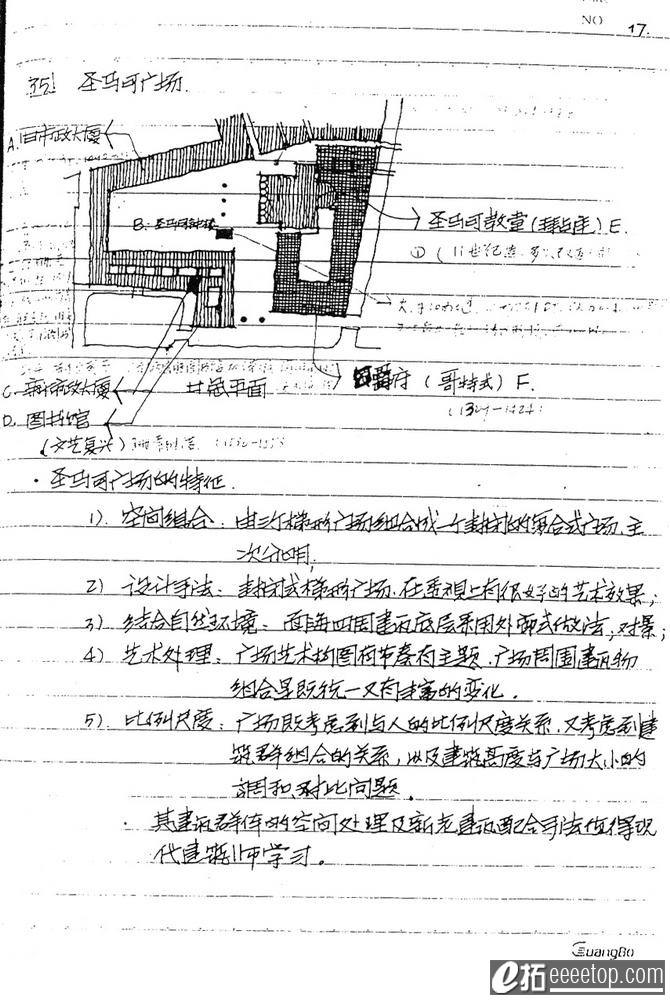 NO 17.
35] 圣马可广场.
A.旧市政大厦
B. 圣马可钟楼
圣马可教堂(拜占庭) E.
① (11世纪造
C. 新市政大厦
总平面
府 (哥特式) F.
(1309-1424)
D. 图书馆
(文艺复兴)
· 圣马可广场的特征.
1). 空间组合: 由三个梯形广场组合成一个封闭的复合式广场,主
次分明;
2) 设计手法: 封闭式梯形广场,在透视上有很好的艺术效果;
3) 结合自然环境: 面海四周建筑底层采用外廊式做法,对景;
4) 艺术处理: 广场艺术构图有节奏有主题.广场周围建筑物
组合呈既统一又有丰富的变化.
5) 比例尺度: 广场既考虑到与人的比例尺度关系,又考虑到建
筑群组合的关系,以及建筑高度与广场大小的
调和对比问题.
· 其建筑群体的空间处理及新老建筑配合手法值得现
代建筑师学习.
GuangBo
e拓 eeeetop.com